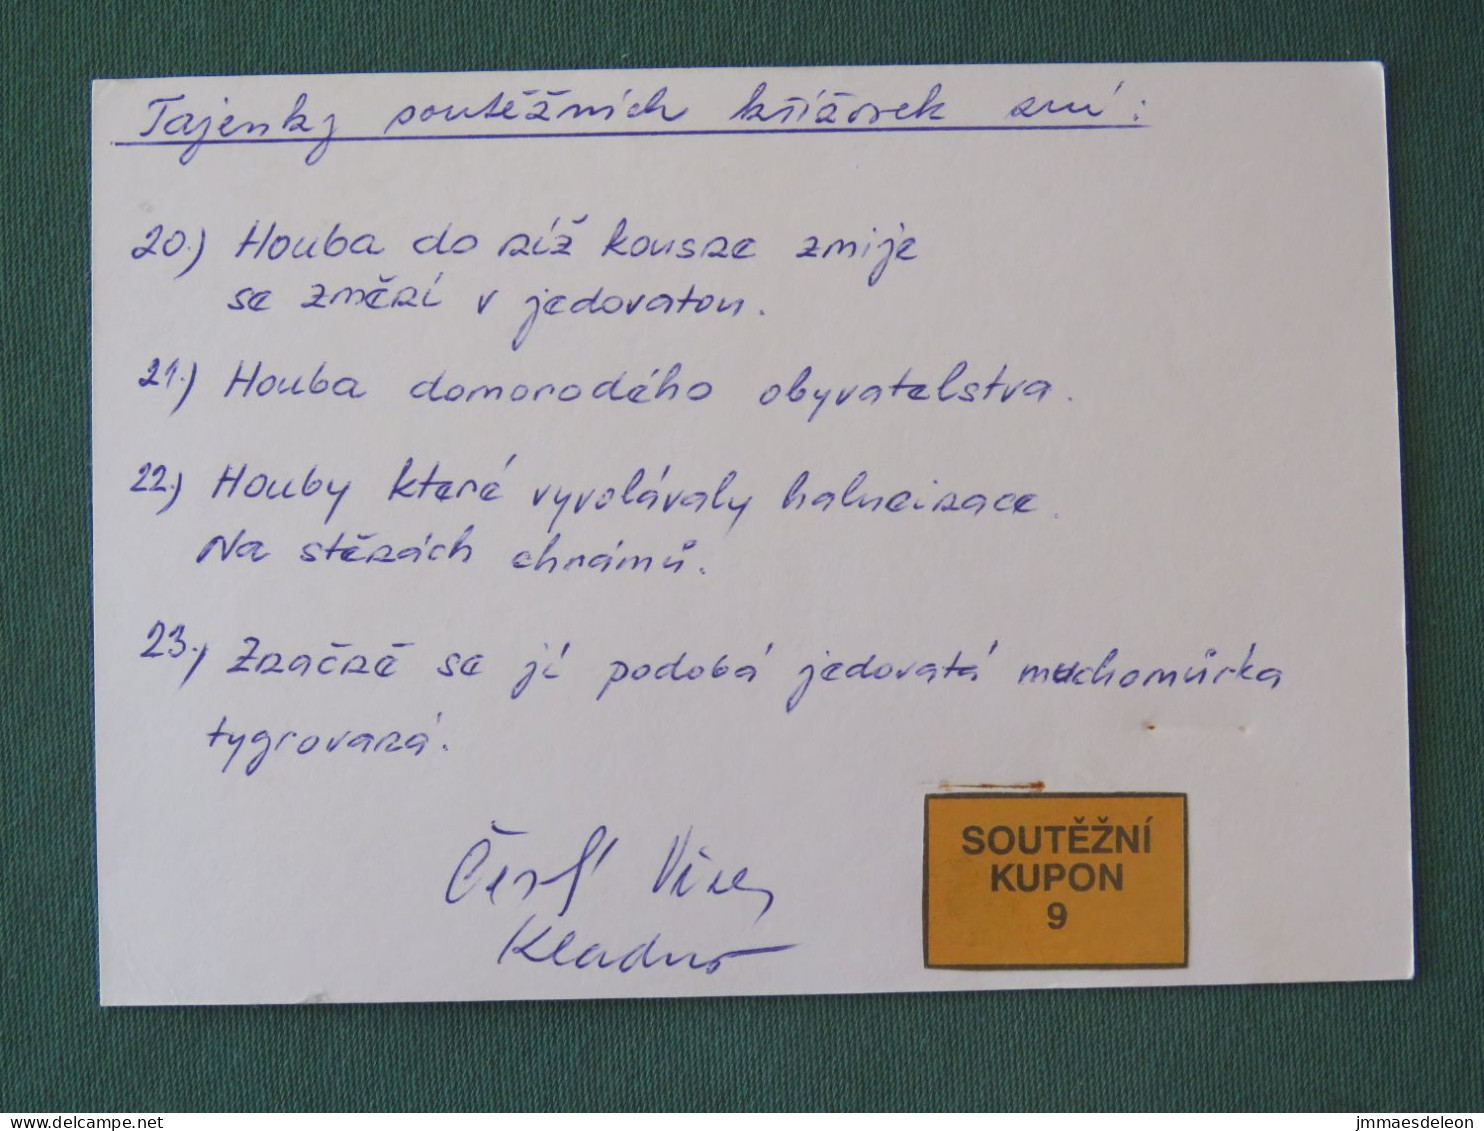 Tajenky soutěžních křížovek zní:
20.) Houba do níž kousne zmije
se změní v jedovatou.
21.) Houba domorodého obyvatelstva.
22.) Houby které vyvolávaly halucinace.
Na stěnách chrámů.
23.) Značně se jí podobá jedovatá muchomůrka
tygrovaná.
Kladno
SOUTĚŽNÍ
KUPON
9
delcampe.net
jmmaesdeleon